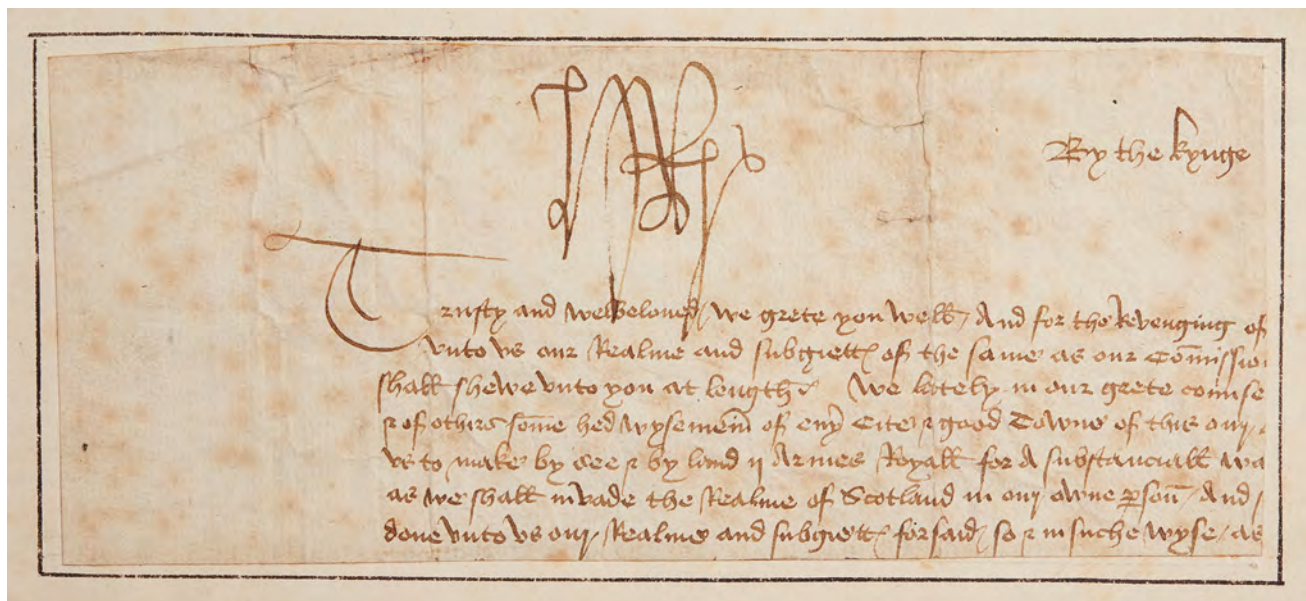 By the kynge
Trusty and welbeloued we grete you well / And for the Revenging of
vnto vs our Realme and subgiett of the same as our Com̄issio
shall shewe vnto you at length We lately in our grete counse
& of othirs som̄e hed wysemen of euy Cite & good Towne of this our
vs to make by see & by land ij Armees Royall for a substanciall wa
as we shall invade the Realme of Scotland in our owne ꝑson / And
done vnto vs our Realme and subgiett forsaid / so & in suche wyse / as